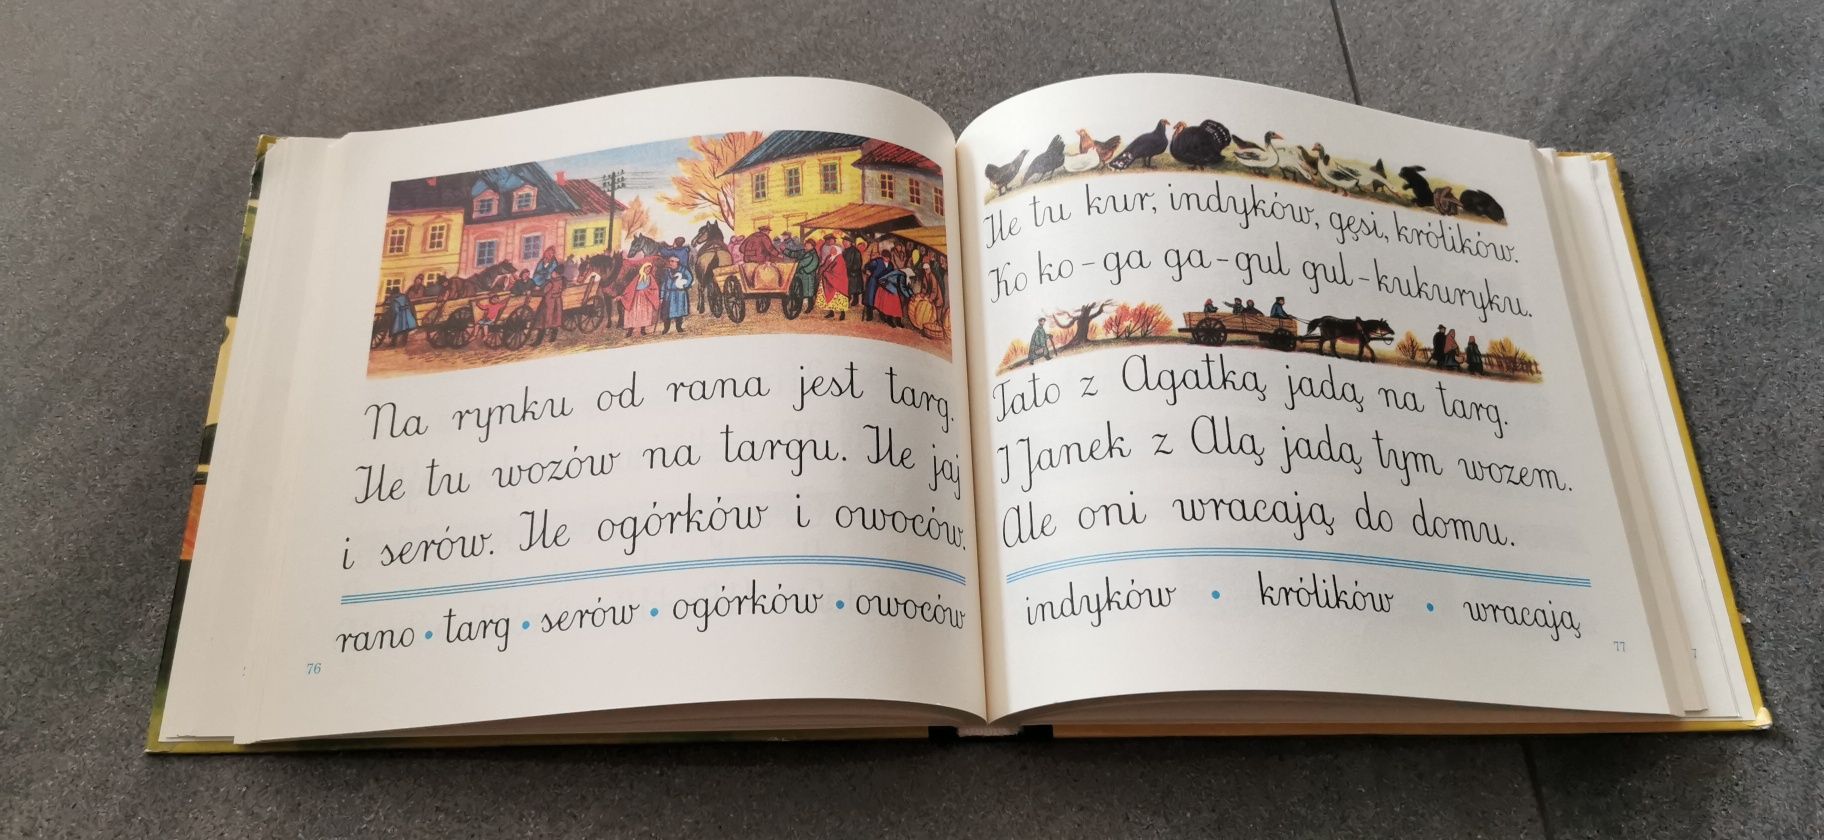 Na rynku od rana jest targ.
Ile tu wozów na targu. Ile jaj
i serów. Ile ogórków i owoców.
rano • targ • serów • ogórków • owoców
76
Ile tu kur, indyków, gęsi, królików.
Ko ko - ga ga - gul gul - kukuryku.
Tato z Agatką jadą na targ.
I Janek z Alą jadą tym wozem.
Ale oni wracają do domu.
indyków • królików • wracają
77